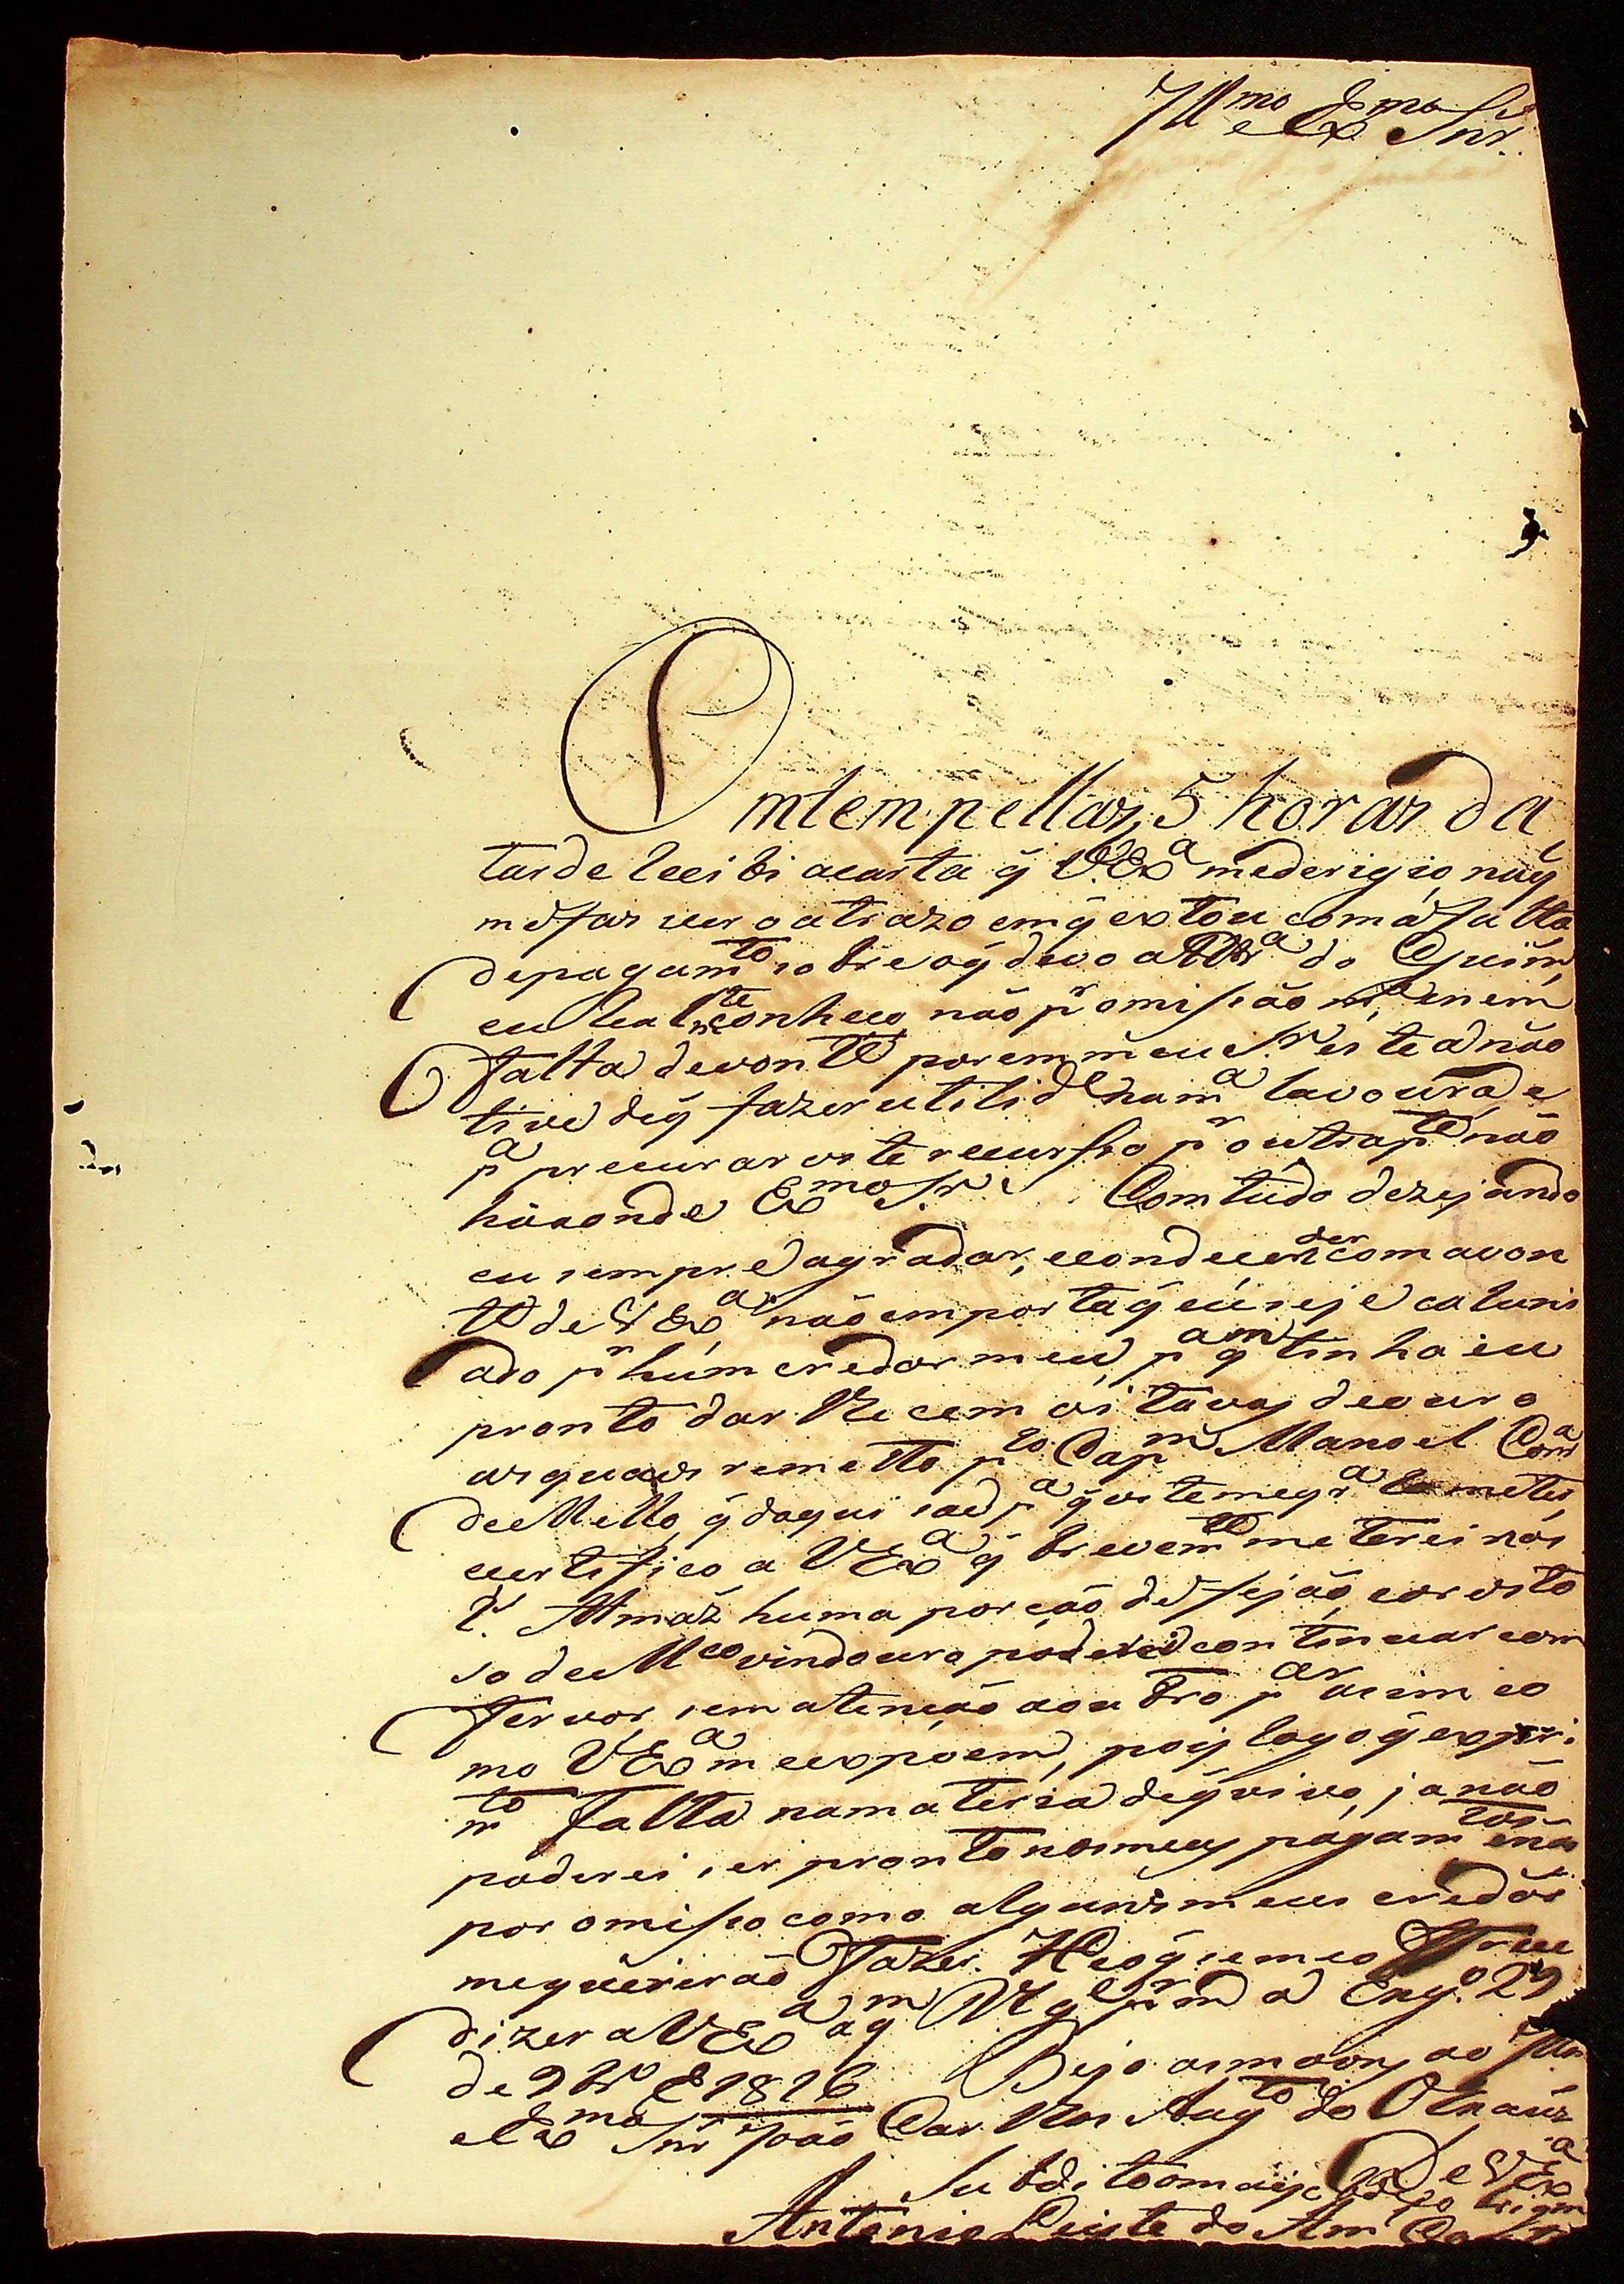 Illmo e Exmo Snr.
Ontem pellas 5 horas da
tarde Recibi a carta q̃ V.Exa me derigio, na q̃
me faz ver o atrazo em q̃ estou com a falta
de pagamto sobre o q̃ devo a do Quim,
eu Realmte conheço, não pr omissão ma, e nem
falta de vonte porem meu Sr este a não
tive de q̃ fazer utilide na ma lavoura, e
pa precurar este recursso pr outra pte não
há aonde Exmo Sr. Com tudo dezejando
eu sempre agradar, e condecender com a von
te de V Exa não emporta q̃ eu seje caluni
ado pr hum credor meu, pa qm tinha eu
pronto dar lhe cem oitavas de ouro
as quais remetto po Capm Manoel Corra
de Mello, q̃ daqui sae pa q̃ este me
certifico a V Exa q̃ brevemte meterei nos
R. Armaz huma porção de feijão, cor esto
so de Mco vindouro poderei continuar com
fervor, sem atenção a outro par asim co
mo V Exa me expoem, pois logo q̃ expiri
mto falta na materia de q̃ vivo, ja não
poderei ser pronto nos meus pagamtos e não
por omisso como alguns meus credor
me quererão fazer. He o q̃ se me o
dizer a V Exa a qm Engo 29
de 9bro de 1816 Bejo as maons ao Illm
e Exmo Snr João Carllos Augto do Oeynaus
De V Exa
Subdito o mais
Antonio Leyte do Am